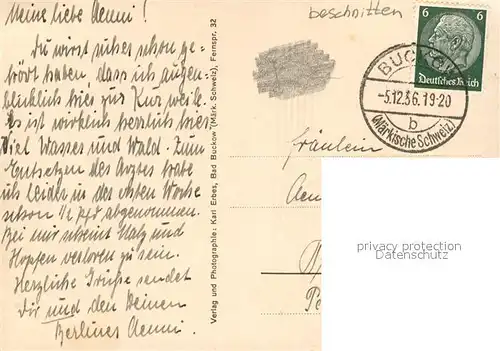 Meine liebe Aenni!
Du wirst sicher schon ge-
hört haben, dass ich augen-
blicklich hier zur Kur weile.
Es ist wirklich herrlich hier
Viel Wasser und Wald. Zum
Entsetzen des Arztes habe
ich leider in der ersten Woche
schon 1/2 Pfd abgenommen.
Bei mir scheint Malz und
Hopfen verloren zu sein.
Herzliche Grüsse sendet
Dir und den Deinen
Berliner Aenni.
Verlag und Photographie: Karl Erbes, Bad Buckow (Märk. Schweiz), Fernspr. 32
beschnitten
6 6
Deutsches Reich
BUCKOW
-5.12.36.19-20
b
(Märkische Schweiz)
Fräulein
Aen
privacy protection
watermark